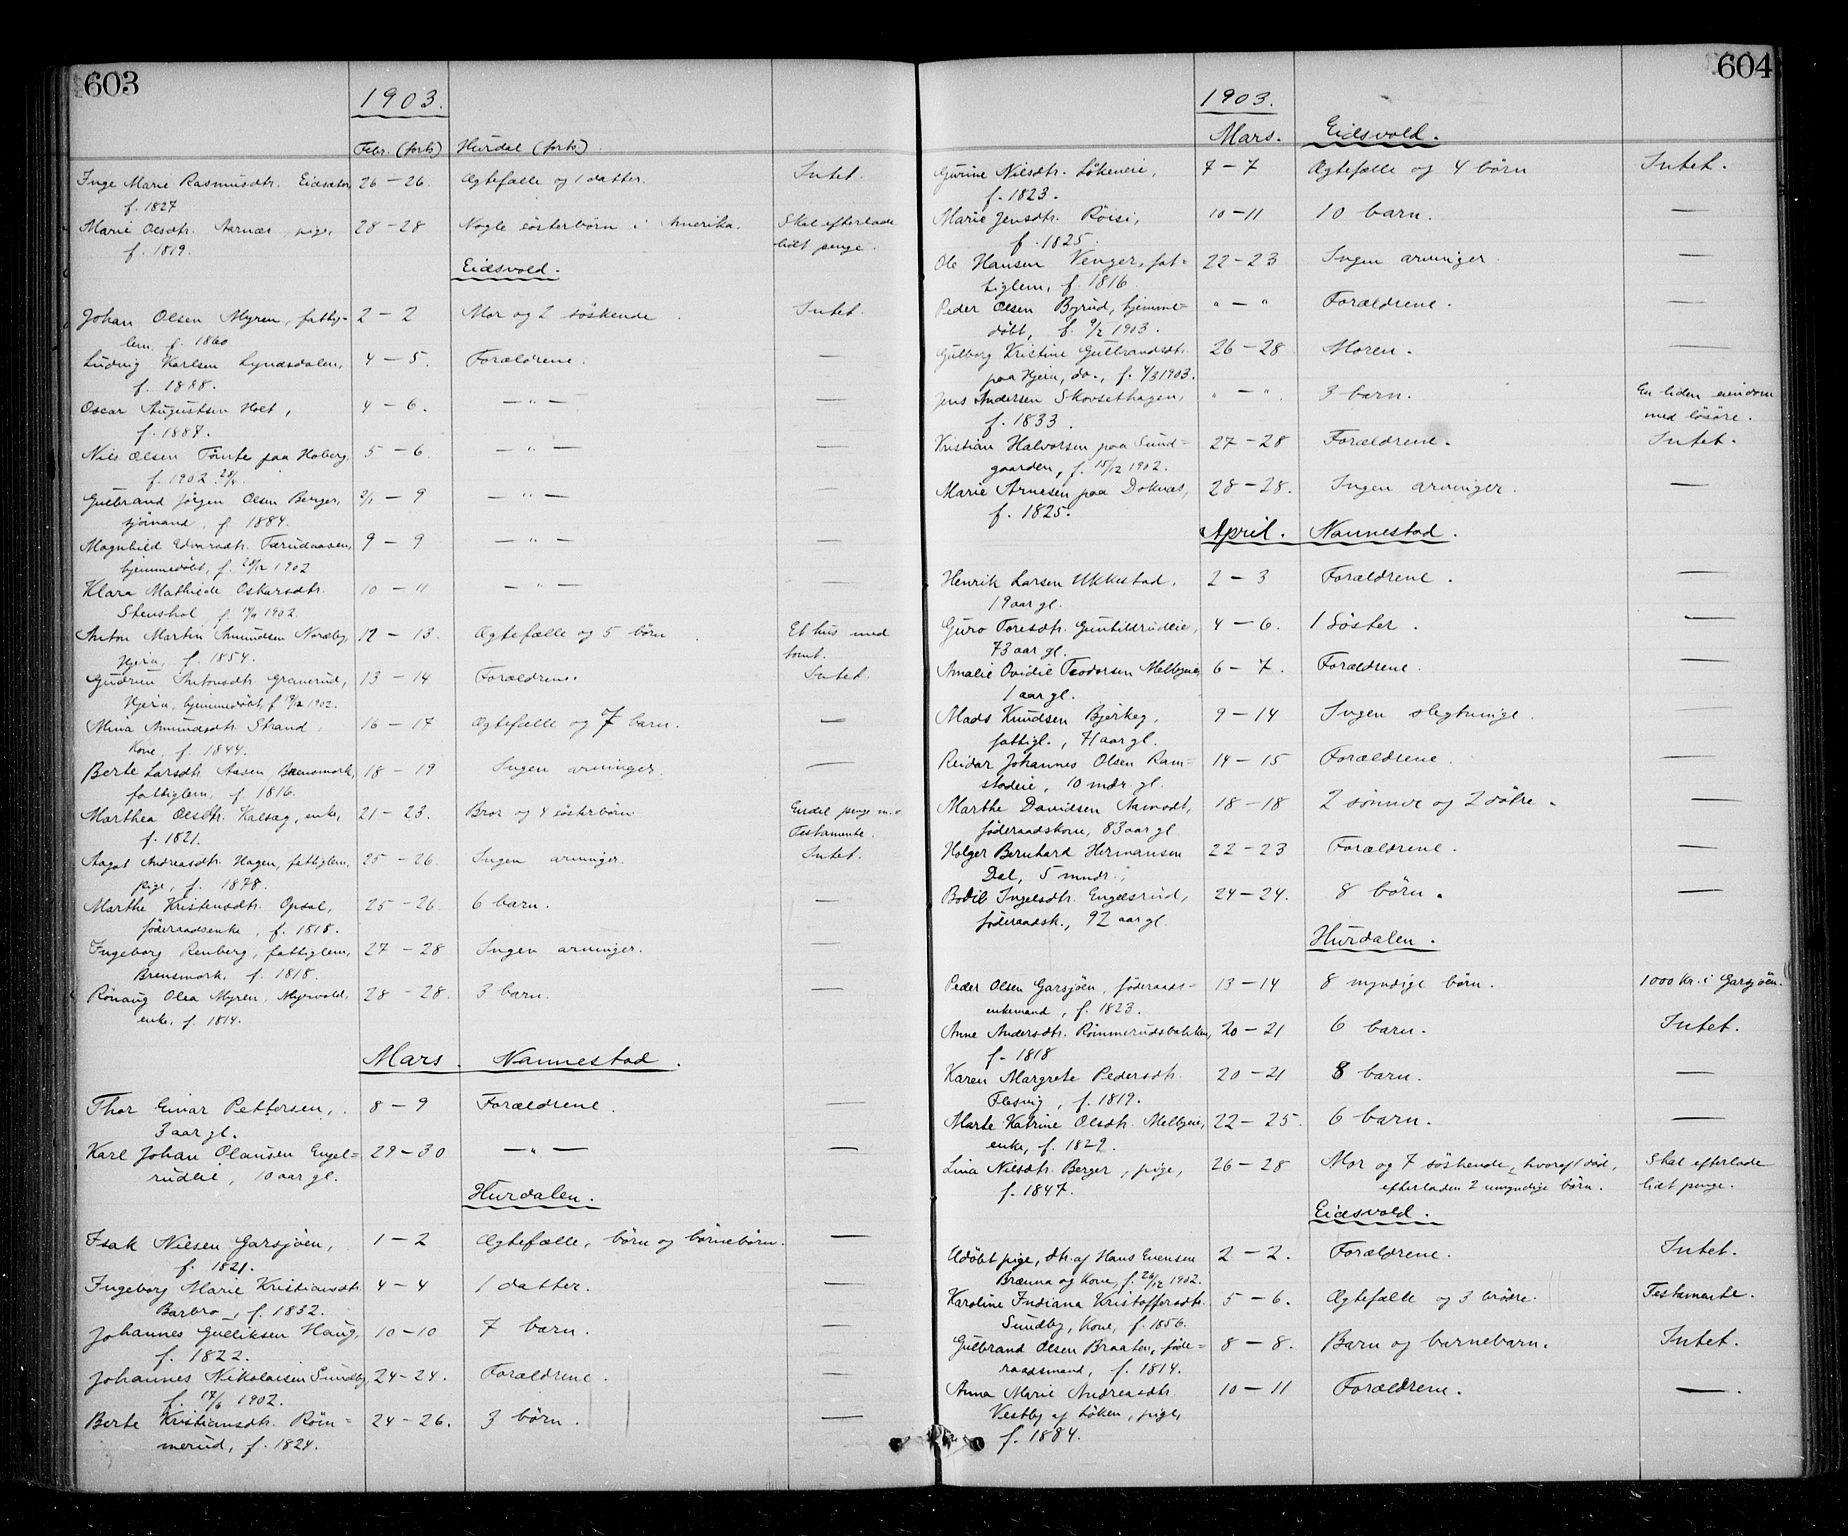 603
1903.
Febr. (forts) Hurdal (forts)
Inge Marie Rasmusdtr. Eidsæter 26 – 26. Ægtefælle og 1 datter. Intet.
f. 1827
Marie Olsdtr. Aarnæs, pige, 28 – 28 Nogle søsterbørn i Amerika. Skal efterlade
f. 1819. lidt penge.
Eidsvold.
Johan Olsen Myren, fattig- 2 – 2 Mor og 2 søskende Intet.
lem, f. 1860
Ludvig Karlsen Lyndsdalen, 4 – 5. Forældrene. —
f. 1888.
Oscar Augustsen Holt, 4 – 6. — " — —
f. 1887.
Nils Olsen Tømte paa Hoberg, 5 – 6 — " — —
f. 1902
Gulbrand Jörgen Olsen Berger, – 9 — " — —
sjömand, f. 1884.
Magnhild Edvardsdtr. 9 – 9 — " — —
hjemmedøbt, f. 1902
Klara Mathilde Oskarsdtr. 10 – 11 — " — —
Stenshol f. 1902.
Anton Martin Amundsen Nordby, 12 – 13. Ægtefælle og 5 børn Et hus med
Hjera, f. 1854. tomt.
Gudrun Antonsdtr. Granerud, 13 – 14 Forældrene. Intet.
Hjera, hjemmedøbt, f. 1902.
Mina Amundsdtr. Strand, 16 – 17 Ægtefælle og 7 barn. —
Kone, f. 1844.
Berte Larsdtr. Aasen, Brensmork, 18 – 19 Ingen arvinger. —
fattiglem, f. 1816.
Marthea Olsdtr. Kalsæg, enke, 21 – 23. Bror og 4 søsterbørn Endel penge
f. 1821. Testamente.
Aagot Andreasdtr. Hagen, fattiglem, 25 – 26. Ingen arvinger. Intet.
pige, f. 1878.
Marthe Kristensdtr. Opsal, 25 – 26. 6 barn. —
föderaadsenke, f. 1818.
Ingeborg Renberg, fattiglem, 27 – 28 Ingen arvinger. —
Brensmork, f. 1818.
Rönaug Olea Myren, Myrvold, 28 – 28. 3 barn. —
enke, f. 1814.
Mars. Nannestad.
Thor Einar Pettersen, 8 – 9 Forældrene. —
3 aar gl.
Karl Johan Olausen Engel- 29 – 30 — " — —
rudeie, 10 aar gl.
Hurdalen.
Isak Nilsen Garsjøen, 1 – 2 Ægtefælle, børn og børnebørn. —
f. 1821.
Ingeborg Marie Kristiansdtr. 4 – 4 1 datter. —
Barbro, f. 1832.
Johannes Gulliksen Haug, 10 – 10 7 barn. —
f. 1822.
Johannes Nikolaisen Sundby, 24 – 24. Forældrene. —
f. 1902.
Berte Kristiansdtr. Röm- 24 – 26. 3 børn. —
merud, f. 1824.
604
1903.
Mars. Eidsvold.
Gurine Nilsdtr. Løkeneie, 7 – 7 Ægtefælle og 4 børn Intet.
f. 1823.
Marie Jensdtr. Röisi, 10 – 11 10 barn. —
f. 1825.
Ole Hansen Venger, fat- 22 – 23 Ingen arvinger. —
tiglem, f. 1816.
Peder Olsen Byrud, hjemme- " – " Forældrene. —
døbt, f. 9/2 1903.
Gulborg Kristine Gulbrandsdtr. 26 – 28 Moren. —
paa Hjera, do., f. 4/3 1903.
Jens Andersen Skovsethagen, " – " 3 barn. En liden eiendom
f. 1833. med løsøre.
Kristian Halvorsen paa Sund- 27 – 28 Forældrene. Intet.
gaarden, f. 15/12 1902.
Marie Arnesen paa Doknæs, 28 – 28. Ingen arvinger. —
f. 1825.
April. Nannestad.
Henrik Larsen Ukkestad, 2 – 3 Forældrene. —
19 aar gl.
Guro Toresdtr. Gunhildrudeie, 4 – 6. 1 Søster. —
73 aar gl.
Amalie Ovidie Teodorsen Melbyeie, 6 – 7. Forældrene. —
1 aar gl.
Mads Knudsen Bjerkeg, 9 – 14 Ingen slegtninge. —
fattigl., 71 aar gl.
Reidar Johannes Olsen Ram- 14 – 15 Forældrene. —
stadeie, 10 mdr. gl.
Marthe Davidsen Aamodt, 18 – 18 2 sönner og 2 dötre. —
föderaadskone, 83 aar gl.
Holger Bernhard Hermansen 22 – 23 Forældrene. —
Dal, 5 mndr.
Bodil Ingelsdtr. Engelsrud, 24 – 24. 8 börn. —
föderaadsk., 92 aar gl.
Hurdalen.
Peder Olsen Garsjöen, föderaads- 13 – 14 8 myndige börn. 1000 Kr. i Garsjöen.
enkemand, f. 1823.
Anne Andersdtr. Römmerudsbakken, 20 – 21 6 barn. Intet.
f. 1818
Karen Margrete Pedersdtr. 20 – 21 8 barn. —
Flesvig, f. 1819.
Marte Katrine Olsdtr. Melbyeie, 22 – 25. 6 barn. —
enke, f. 1829.
Lina Nilsdtr. Berger, pige, 26 – 28 Mor og 7 söskende, hvoraf 1 död, Skal efterlade
f. 1847. efterladen 2 umyndige börn. lidt penge.
Eidsvold.
Udöbt pige, dtr. af Hans Evensen 2 – 2. Forældrene. Intet.
Brænna og Kone, f. 26/12 1902.
Karoline Indiana Kristoffersdtr. 5 – 6. Ægtefælle og 3 brödre. Testamente.
Sundby, Kone, f. 1856.
Gulbrand Olsen Braaten, föde- 8 – 8. Barn og barnebarn. Intet.
raadsmand, f. 1814.
Anna Marie Andreasdtr. 10 – 11 Forældrene. —
Vestby af Løken, pige,
f. 1884.